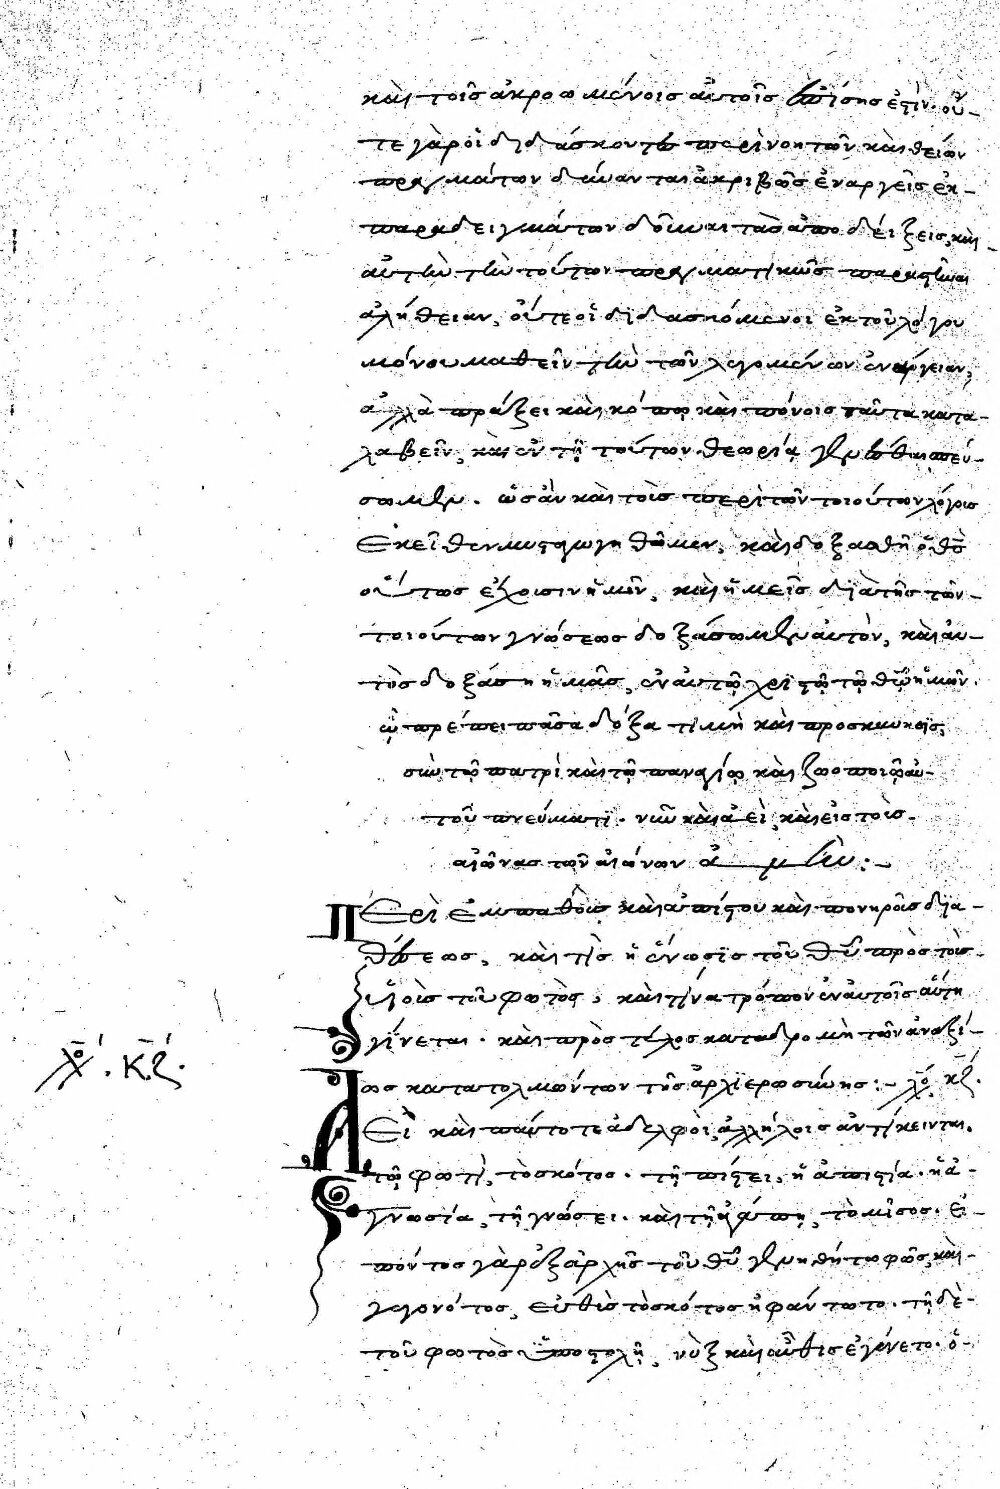 καὶ τοῖς ἀκροωμένοις αὐτοῖς ἐπίσης ἐστίν. οὔ-
τε γὰρ οἱ διδάσκοντες περὶ νοητῶν καὶ θείων
πραγμάτων δύνανται ἀκριβῶς ἐναργεῖς ἐκ
παραδειγμάτων δοῦναι τὰς ἀποδείξεις, καὶ
αὐτὴν τὴν τούτων πραγματικῶς παραστῆσαι
ἀλήθειαν, οὔτε οἱ διδασκόμενοι ἐκ τοῦ λόγου
μόνου μαθεῖν τὴν τῶν λεγομένων ἐνάργειαν,
ἀλλὰ πράξει καὶ κόπῳ καὶ πόνοις ταῦτα κατα-
λαβεῖν, καὶ ἐν τῇ τούτων θεωρίᾳ γενέσθαι σπεύ-
σωμεν. ὡς ἂν καὶ τοῖς περὶ τῶν τοιούτων λόγοις
ἐκεῖθεν μυσταγωγηθῶμεν, καὶ δοξασθῇ ὁ θς
οὕτως ἔχουσιν ἡμῖν, καὶ ἡμεῖς διὰ τῆς τῶν
τοιούτων γνώσεως δοξάσωμεν αὐτόν, καὶ αὐ-
τὸς δοξάσῃ ἡμᾶς, ἐν αὐτῷ χριστῷ τῷ θῷ ἡμῶν.
ᾧ πρέπει πᾶσα δόξα τιμὴ καὶ προσκύνησις,
σὺν τῷ πατρὶ καὶ τῷ παναγίῳ καὶ ζωοποιῷ αὐ-
τοῦ πνεύματι. νῦν καὶ ἀεὶ, καὶ εἰς τοὺς
αἰῶνας τῶν αἰώνων ἀμήν:-
Περὶ ἐμπαθοῦς καὶ ἀπίστου καὶ πονηρᾶς δια-
θέσεως, καὶ τίς ἡ ἕνωσις τοῦ θῦ πρὸς τοὺς
υἱοὺς τοῦ φωτός, καὶ τίνα τρόπον ἐν αὐτοῖς αὕτη
γίνεται. καὶ πρὸς τέλος καταδρομὴ τῶν ἀναξί-
ως κατατολμώντων τῆς ἀρχιερωσύνης:- λγ κζ.
λγ. κζ.
Ἀεὶ καὶ πάντοτε ἀδελφοὶ, ἀλλήλοις ἀντίκεινται.
τῷ φωτὶ, τὸ σκότος. τῇ πίστει, ἡ ἀπιστία. ἡ ἀ-
γνωσία, τῇ γνώσει. καὶ τῇ ἀγάπῃ, τὸ μῖσος. εἰ-
πόντος γὰρ ἐξ ἀρχῆς τοῦ θῦ γενηθήτω φῶς, καὶ
γεγονότος, εὐθὺς τὸ σκότος ἠφάντωτο. τῇ δὲ
τοῦ φωτὸς ὑποστολῇ, νὺξ καὶ αὖθις ἐγένετο. ὁ-